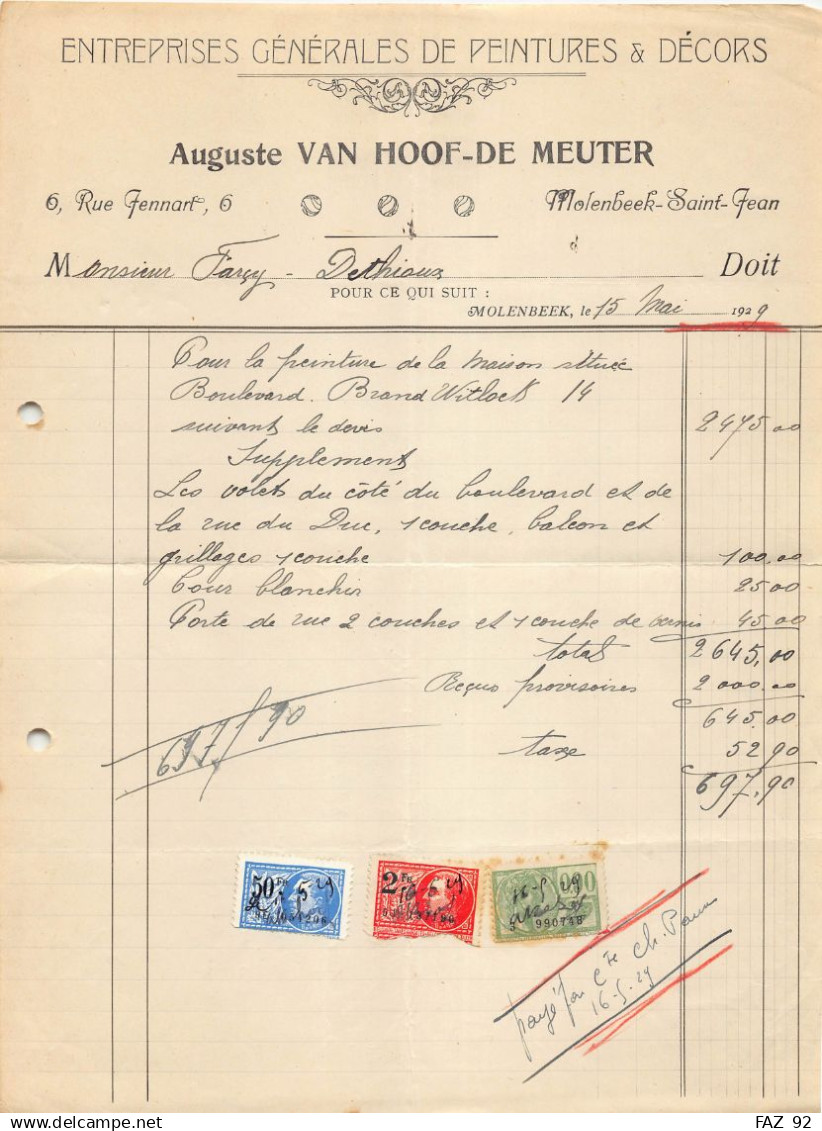 ENTREPRISES GÉNÉRALES DE PEINTURES & DÉCORS
Auguste VAN HOOF-DE MEUTER
6, Rue Jennart, 6 Molenbeek-Saint-Jean
Monsieur Farcy - Dethioux Doit
POUR CE QUI SUIT :
MOLENBEEK, le 15 Mai 1929
Pour la peinture de la maison située
Boulevard Brand Witlock 14
suivant le devis 2475 00
Supplement
Les volets du côté du boulevard et de
la rue du Duc, 1 couche, balcon et
grillages 1 couche 100.00
Cour blanchir 25 00
Porte de rue 2 couches et 1 couche de vernis 45.00
total 2645,00
Reçus provisoires 2000.00
645.00
taxe 52 90
697,90
697/90
50 Fr 5 29
2 Fr 16-5 29
16-5 29 0,90
990748
payé par Cte Ch. 
16-5-29
FAZ 92